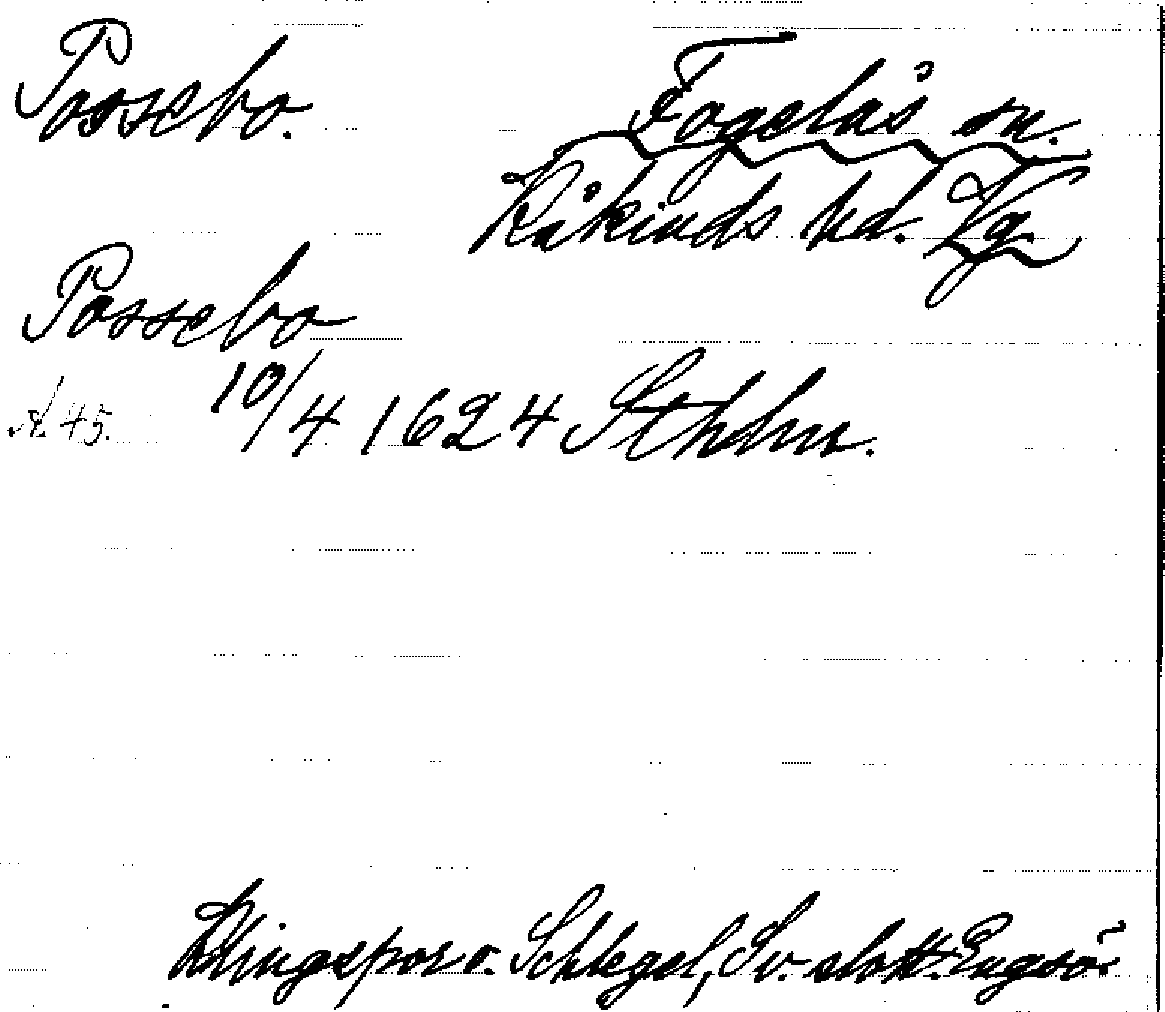 Possebo. Fogelås sn.
Kåkinds hd. Vg.
Possebo
A. 45. 10/4 1624 Sthlm.
Klingspor o. Schlegel, Sv. slott. Engsö